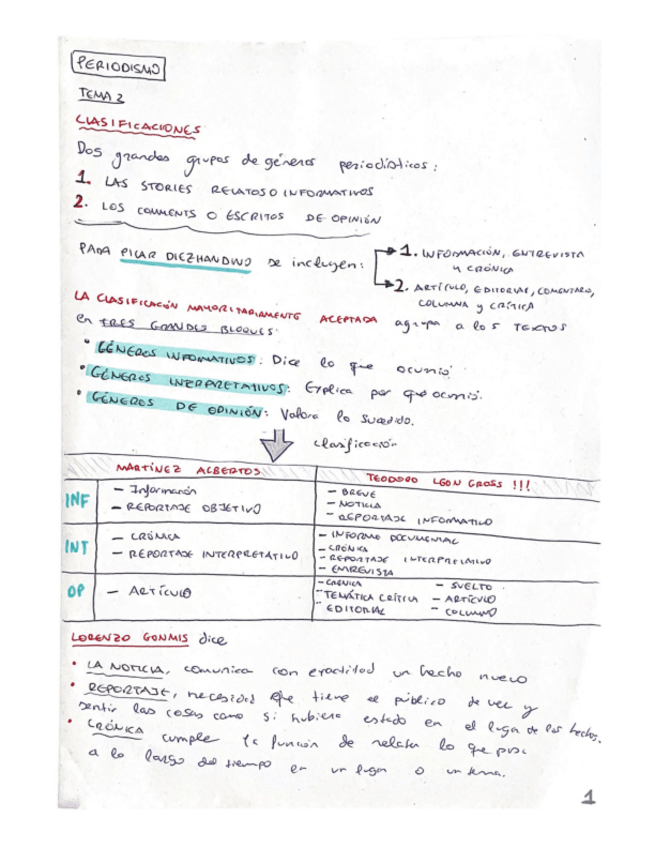 PERIODISMO
TEMA 2
CLASIFICACIONES
Dos grandes grupos de géneros periodísticos:
1. LAS STORIES RELATOS O INFORMATIVOS
2. LOS COMMENTS O ESCRITOS DE OPINIÓN
PARA PILAR DIEZHANDINO se incluyen:
1. INFORMACIÓN, ENTREVISTA
y CRÓNICA
2. ARTÍCULO, EDITORIAL, COMENTARIO,
COLUMNA y CRÍTICA
LA CLASIFICACIÓN MAYORITARIAMENTE ACEPTADA agrupa a los TEXTOS
en TRES GRANDES BLOQUES:
• GÉNEROS INFORMATIVOS: Dice lo que ocurrió.
• GÉNEROS INTERPRETATIVOS: Explica por qué ocurrió.
• GÉNEROS DE OPINIÓN: Valora lo sucedido.
clasificación
MARTÍNEZ ALBERTOS
TEODORO LEON GROSS !!!
INF
- Información
- REPORTAJE OBJETIVO
- BREVE
- NOTICIA
- REPORTAJE INFORMATIVO
INT
- CRÓNICA
- REPORTAJE INTERPRETATIVO
- INFORME DOCUMENTAL
- CRÓNICA
- REPORTAJE INTERPRETATIVO
- ENTREVISTA
OP
- ARTÍCULO
- CRÓNICA
- TEMÁTICA CRÍTICA
- EDITORIAL
- SUELTO
- ARTÍCULO
- COLUMNA
LORENZO GOMIS dice
• LA NOTICIA, comunica con exactitud un hecho nuevo
• REPORTAJE, necesidad que tiene el público de ver y
sentir las cosas como si hubiera estado en el lugar de los hechos.
• CRÓNICA cumple la función de relatar lo que pasa
a lo largo del tiempo en un lugar o un tema.
1